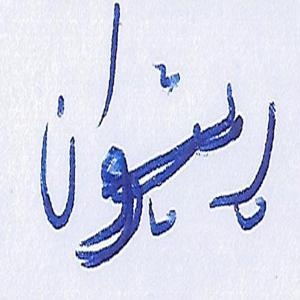 ريشوان